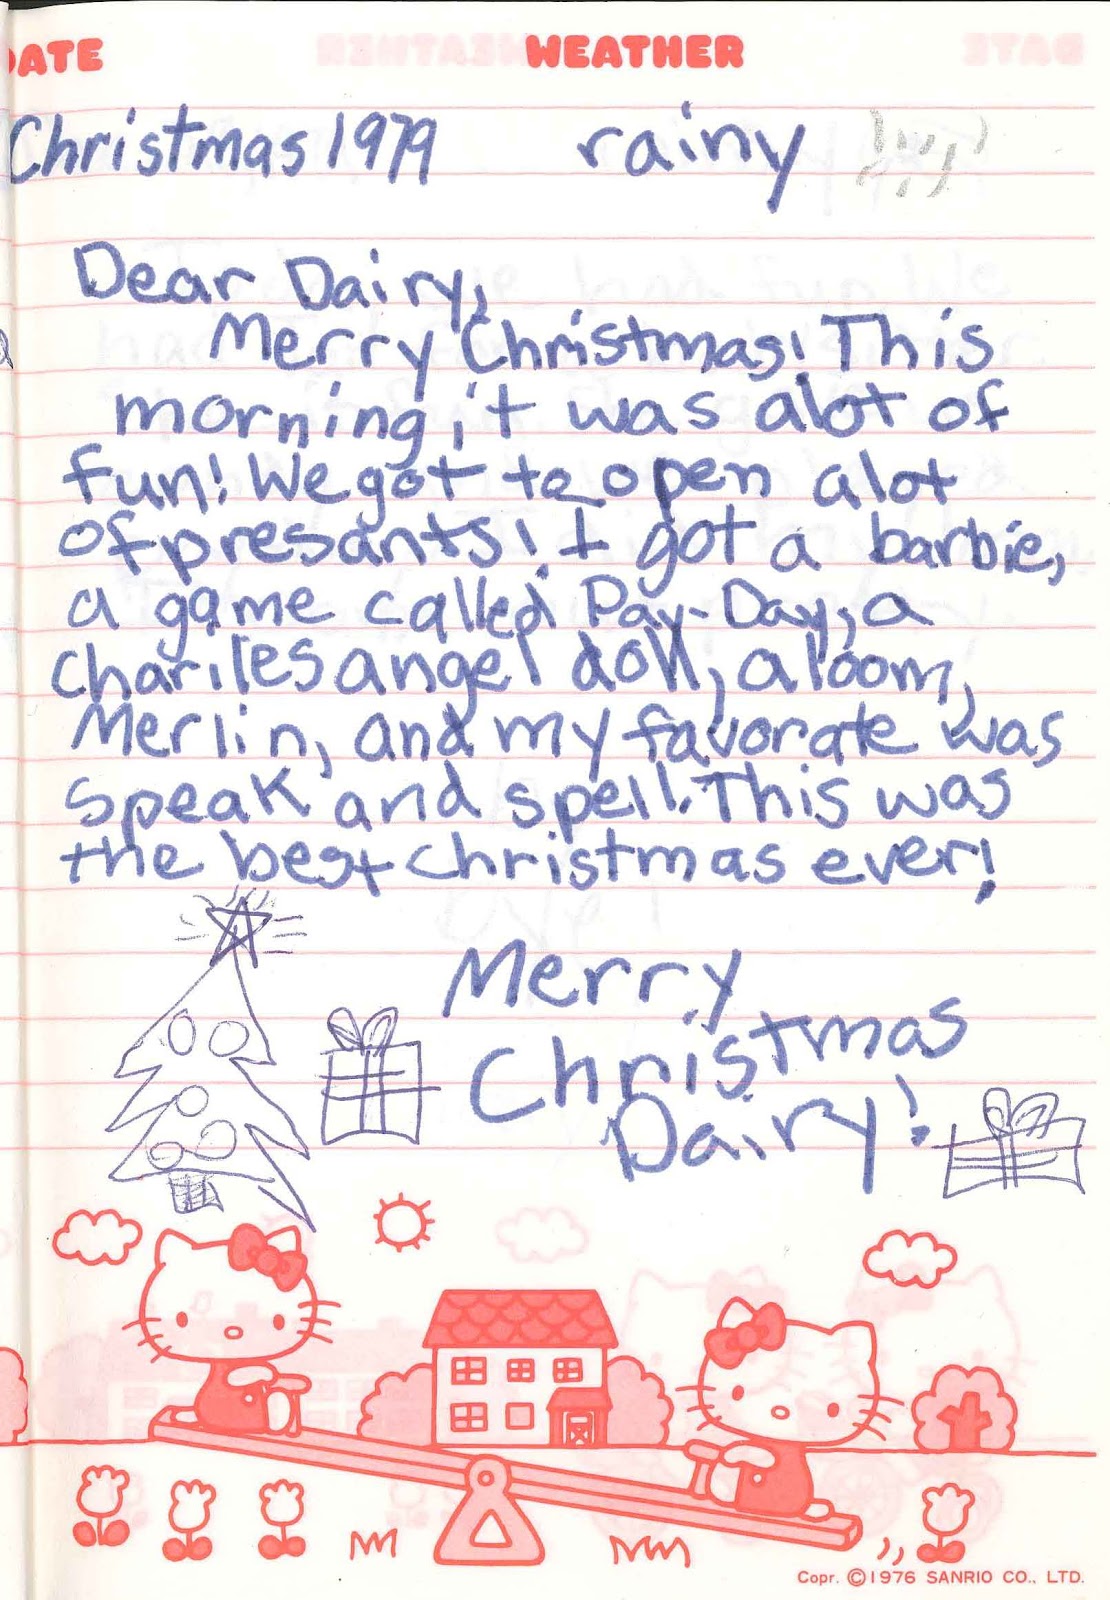 DATE WEATHER
Christmas 1979 rainy
Dear Dairy,
Merry Christmas! This
morning it was alot of
fun! We got to open alot
of presants! I got a barbie,
a game called Pay-Day, a
Chariles angel doll, a loom,
Merlin, and my favorate was
speak and spell. This was
the best christmas ever!
Merry
Christmas
Dairy!
Copr. ©1976 SANRIO CO., LTD.